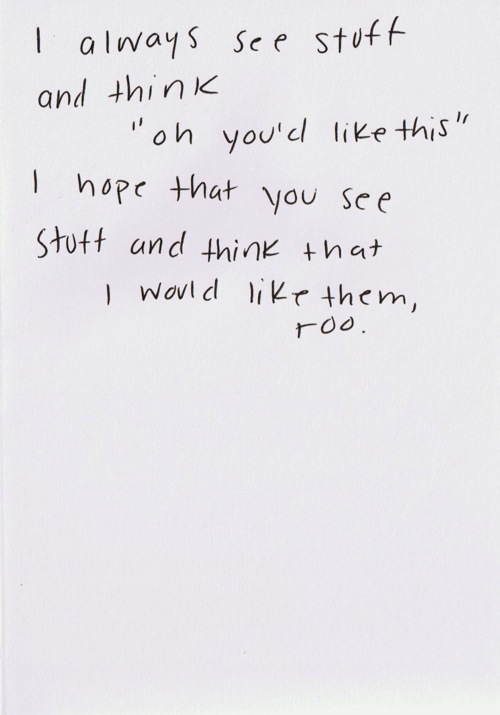 I always see stuff
and think
"oh you'd like this"
I hope that you see
stuff and think that
I would like them,
too.